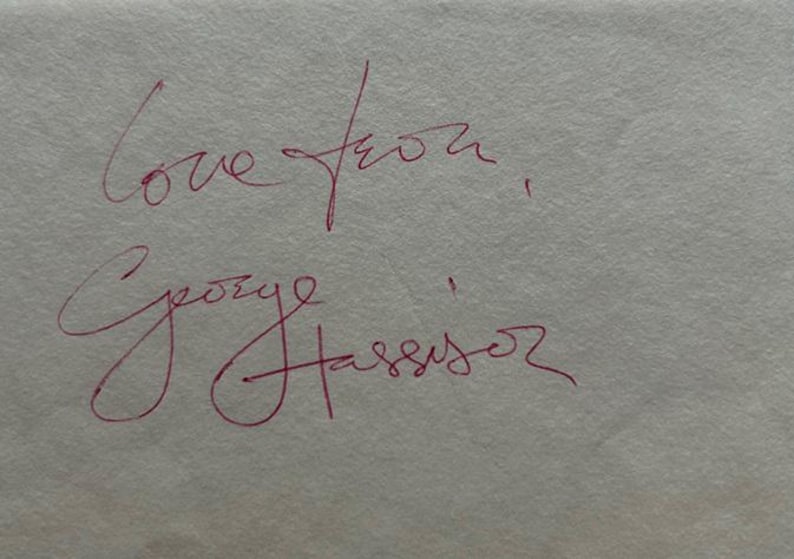 Love from,
George
Harrison